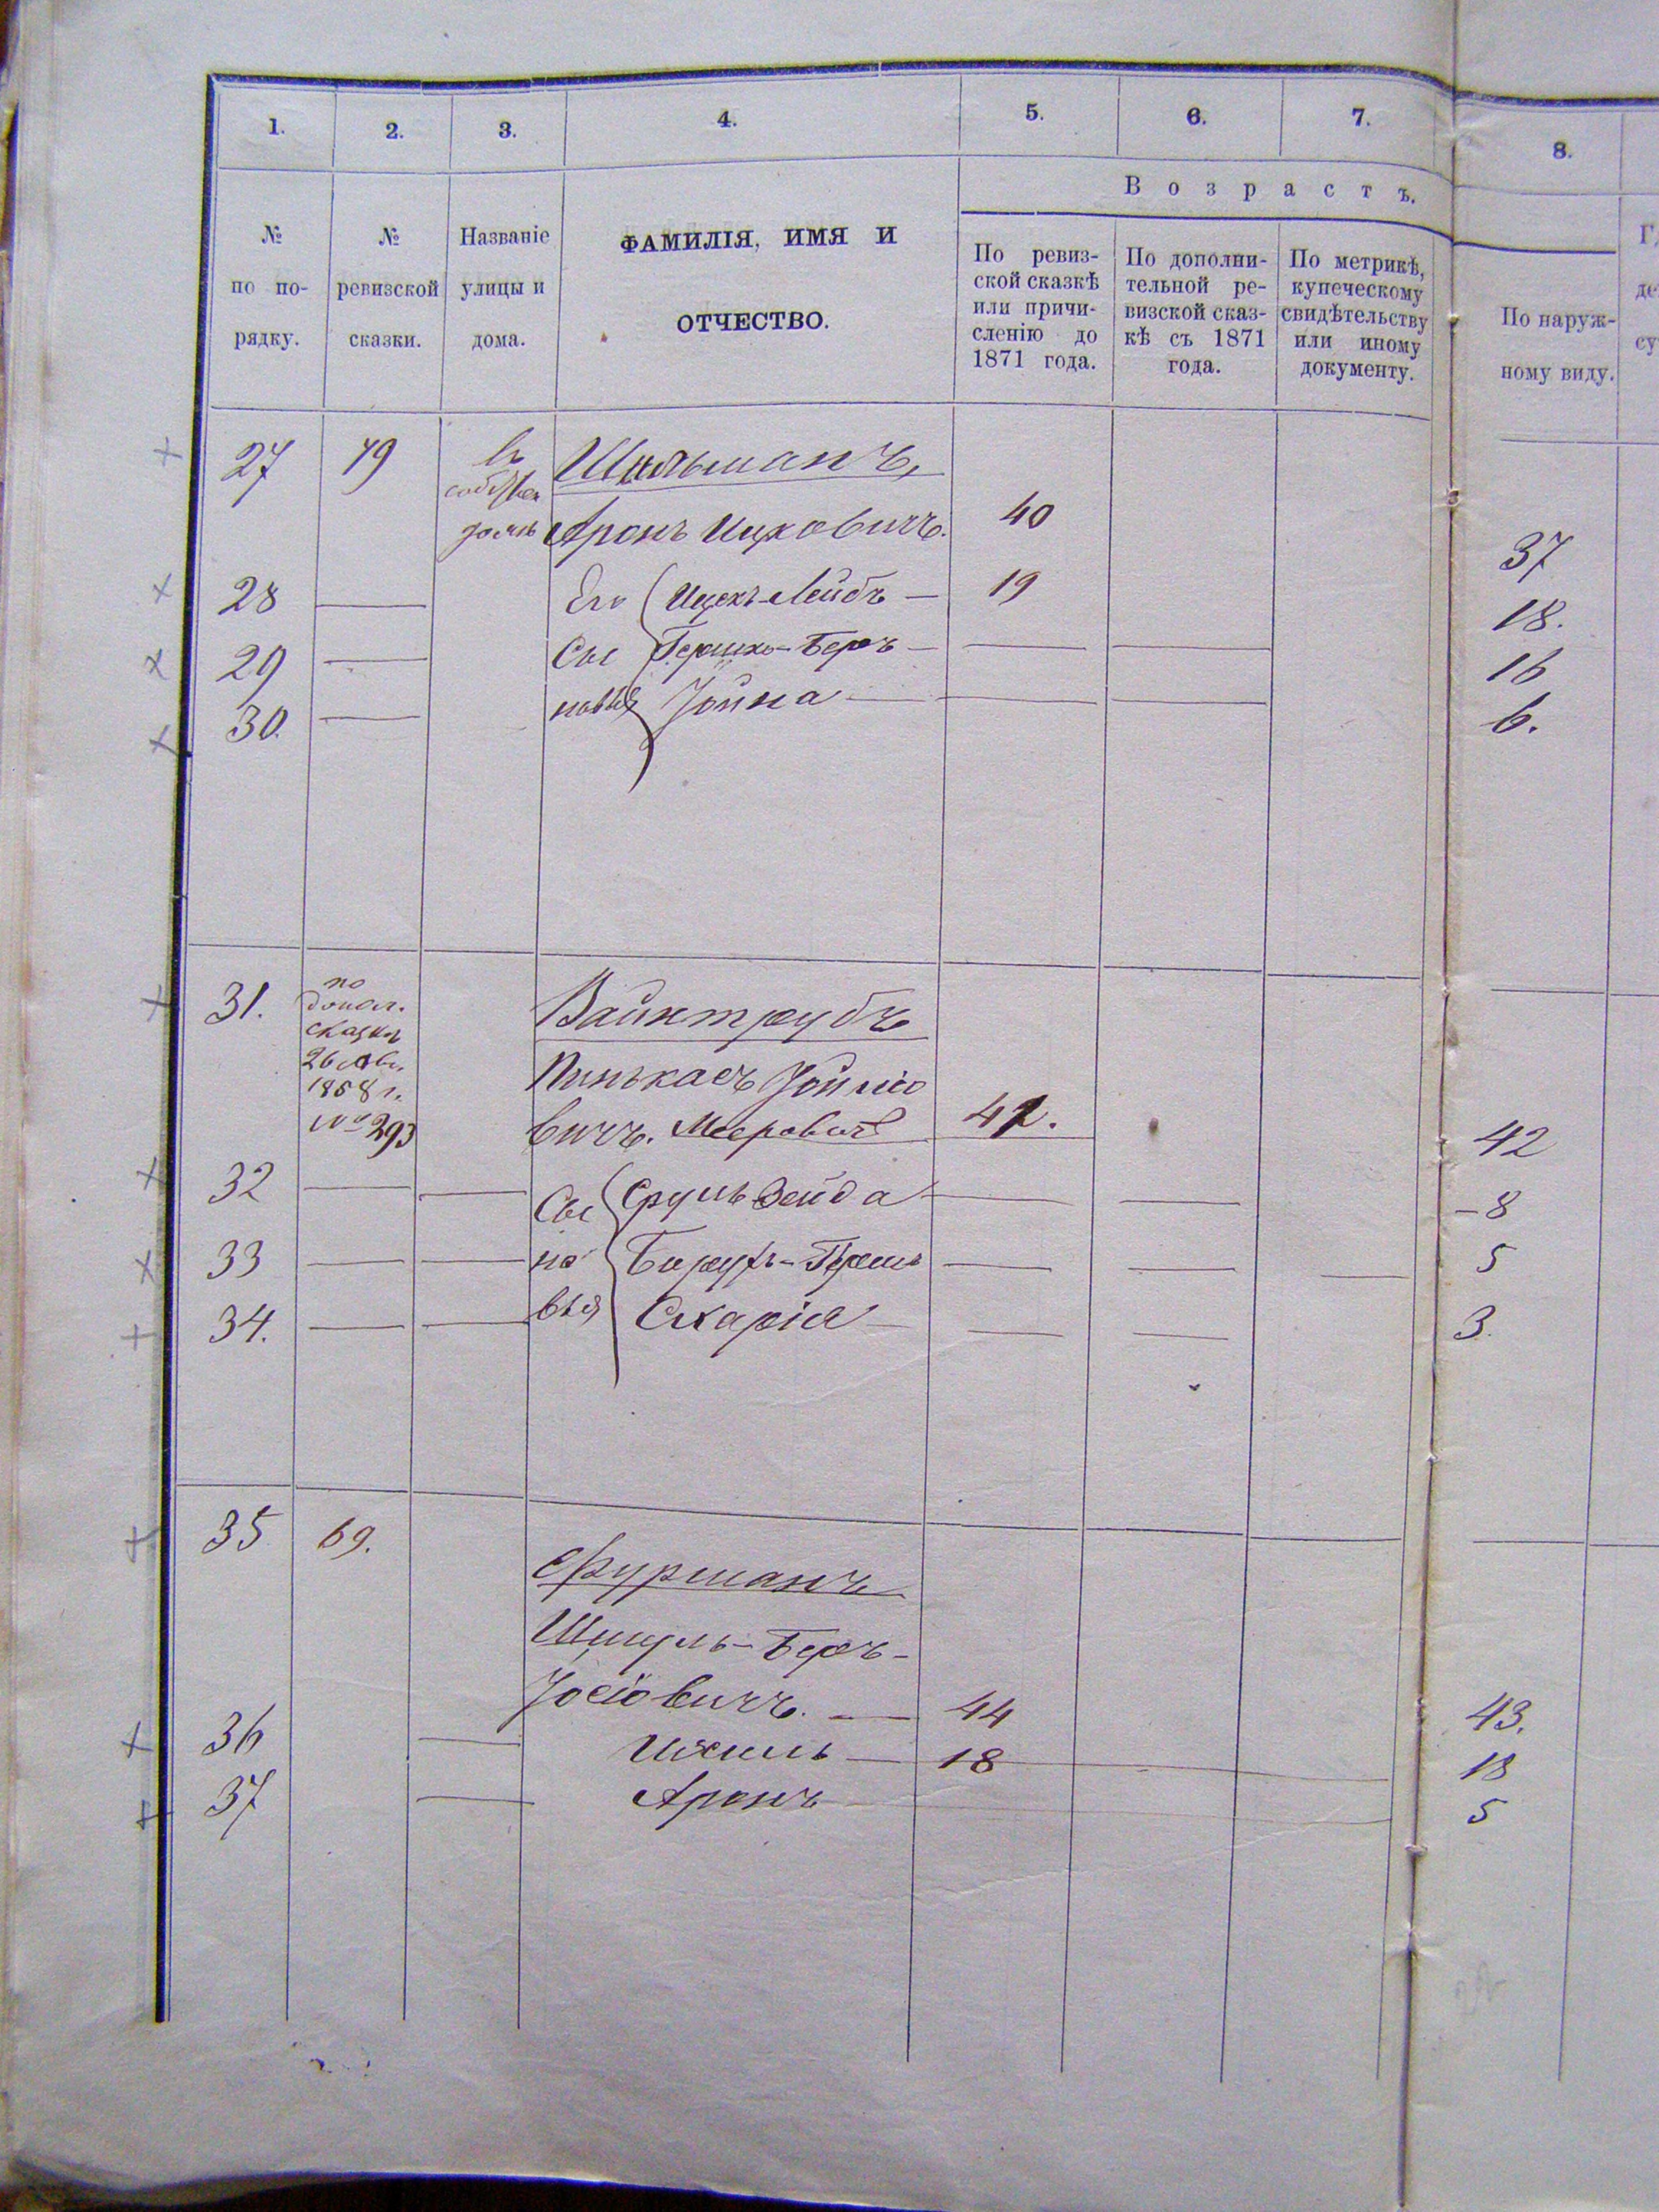 1. 2. 3. 4. 5. 6. 7. 8.
Возрастъ.
№ по по-рядку.
№ ревизской сказки.
Названіе улицы и дома.
ФАМИЛІЯ, ИМЯ И
ОТЧЕСТВО.
По ревиз-
ской сказкѣ
или причи-
сленію до
1871 года.
По дополни-
тельной ре-
визской сказ-
кѣ съ 1871
года.
По метрикѣ,
купеческому
свидѣтельству
или иному
документу.
По наруж-
ному виду.
27 79 въ
домѣ Аронъ Ицковичъ. 40 37
28 Его Ицекъ-Лейбъ 19 18.
29 Сы Гершко-Беръ 16
30. новья Іойна 6.
31. по
допол.
сказкѣ
1858 г.
№ 293
Вайнтрубъ
Пинькасъ
вичъ. Мееровичъ 42. 42
32 Сы Сруль Зейда 8
33 но Борухъ-Гершъ 5
34. вья Скарія 3.
35 69.
Фурманъ
Шмуль-Беръ-
Іосіовичъ. 44 43.
36 Ихиль 18 18
37 Аронъ 5